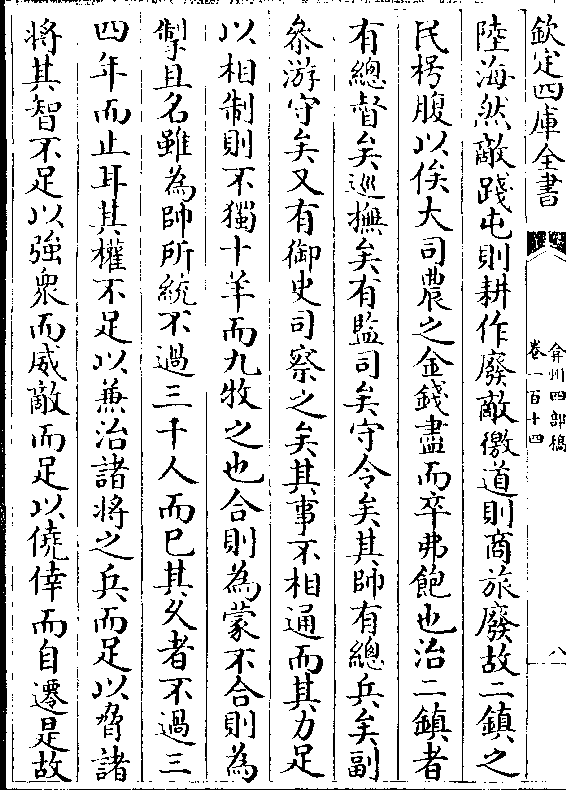 欽定四庫全書
弇州四部稿
卷一百十四
八
陸海然敵踐屯則耕作廢敵徼道則商旅廢故二鎮之
民枵腹以俟大司農之金錢盡而卒弗飽也治二鎮者
有總督矣巡撫矣有監司矣守令矣其帥有總兵矣副
叅游守矣又有御史司察之矣其事不相通而其力足
以相制則不獨十羊而九牧之也合則為蒙不合則為
掣且名雖為帥所統不過三千人而已其久者不過三
四年而止耳其權不足以兼治諸將之兵而足以脅諸
將其智不足以強衆而威敵而足以僥倖而自遷是故